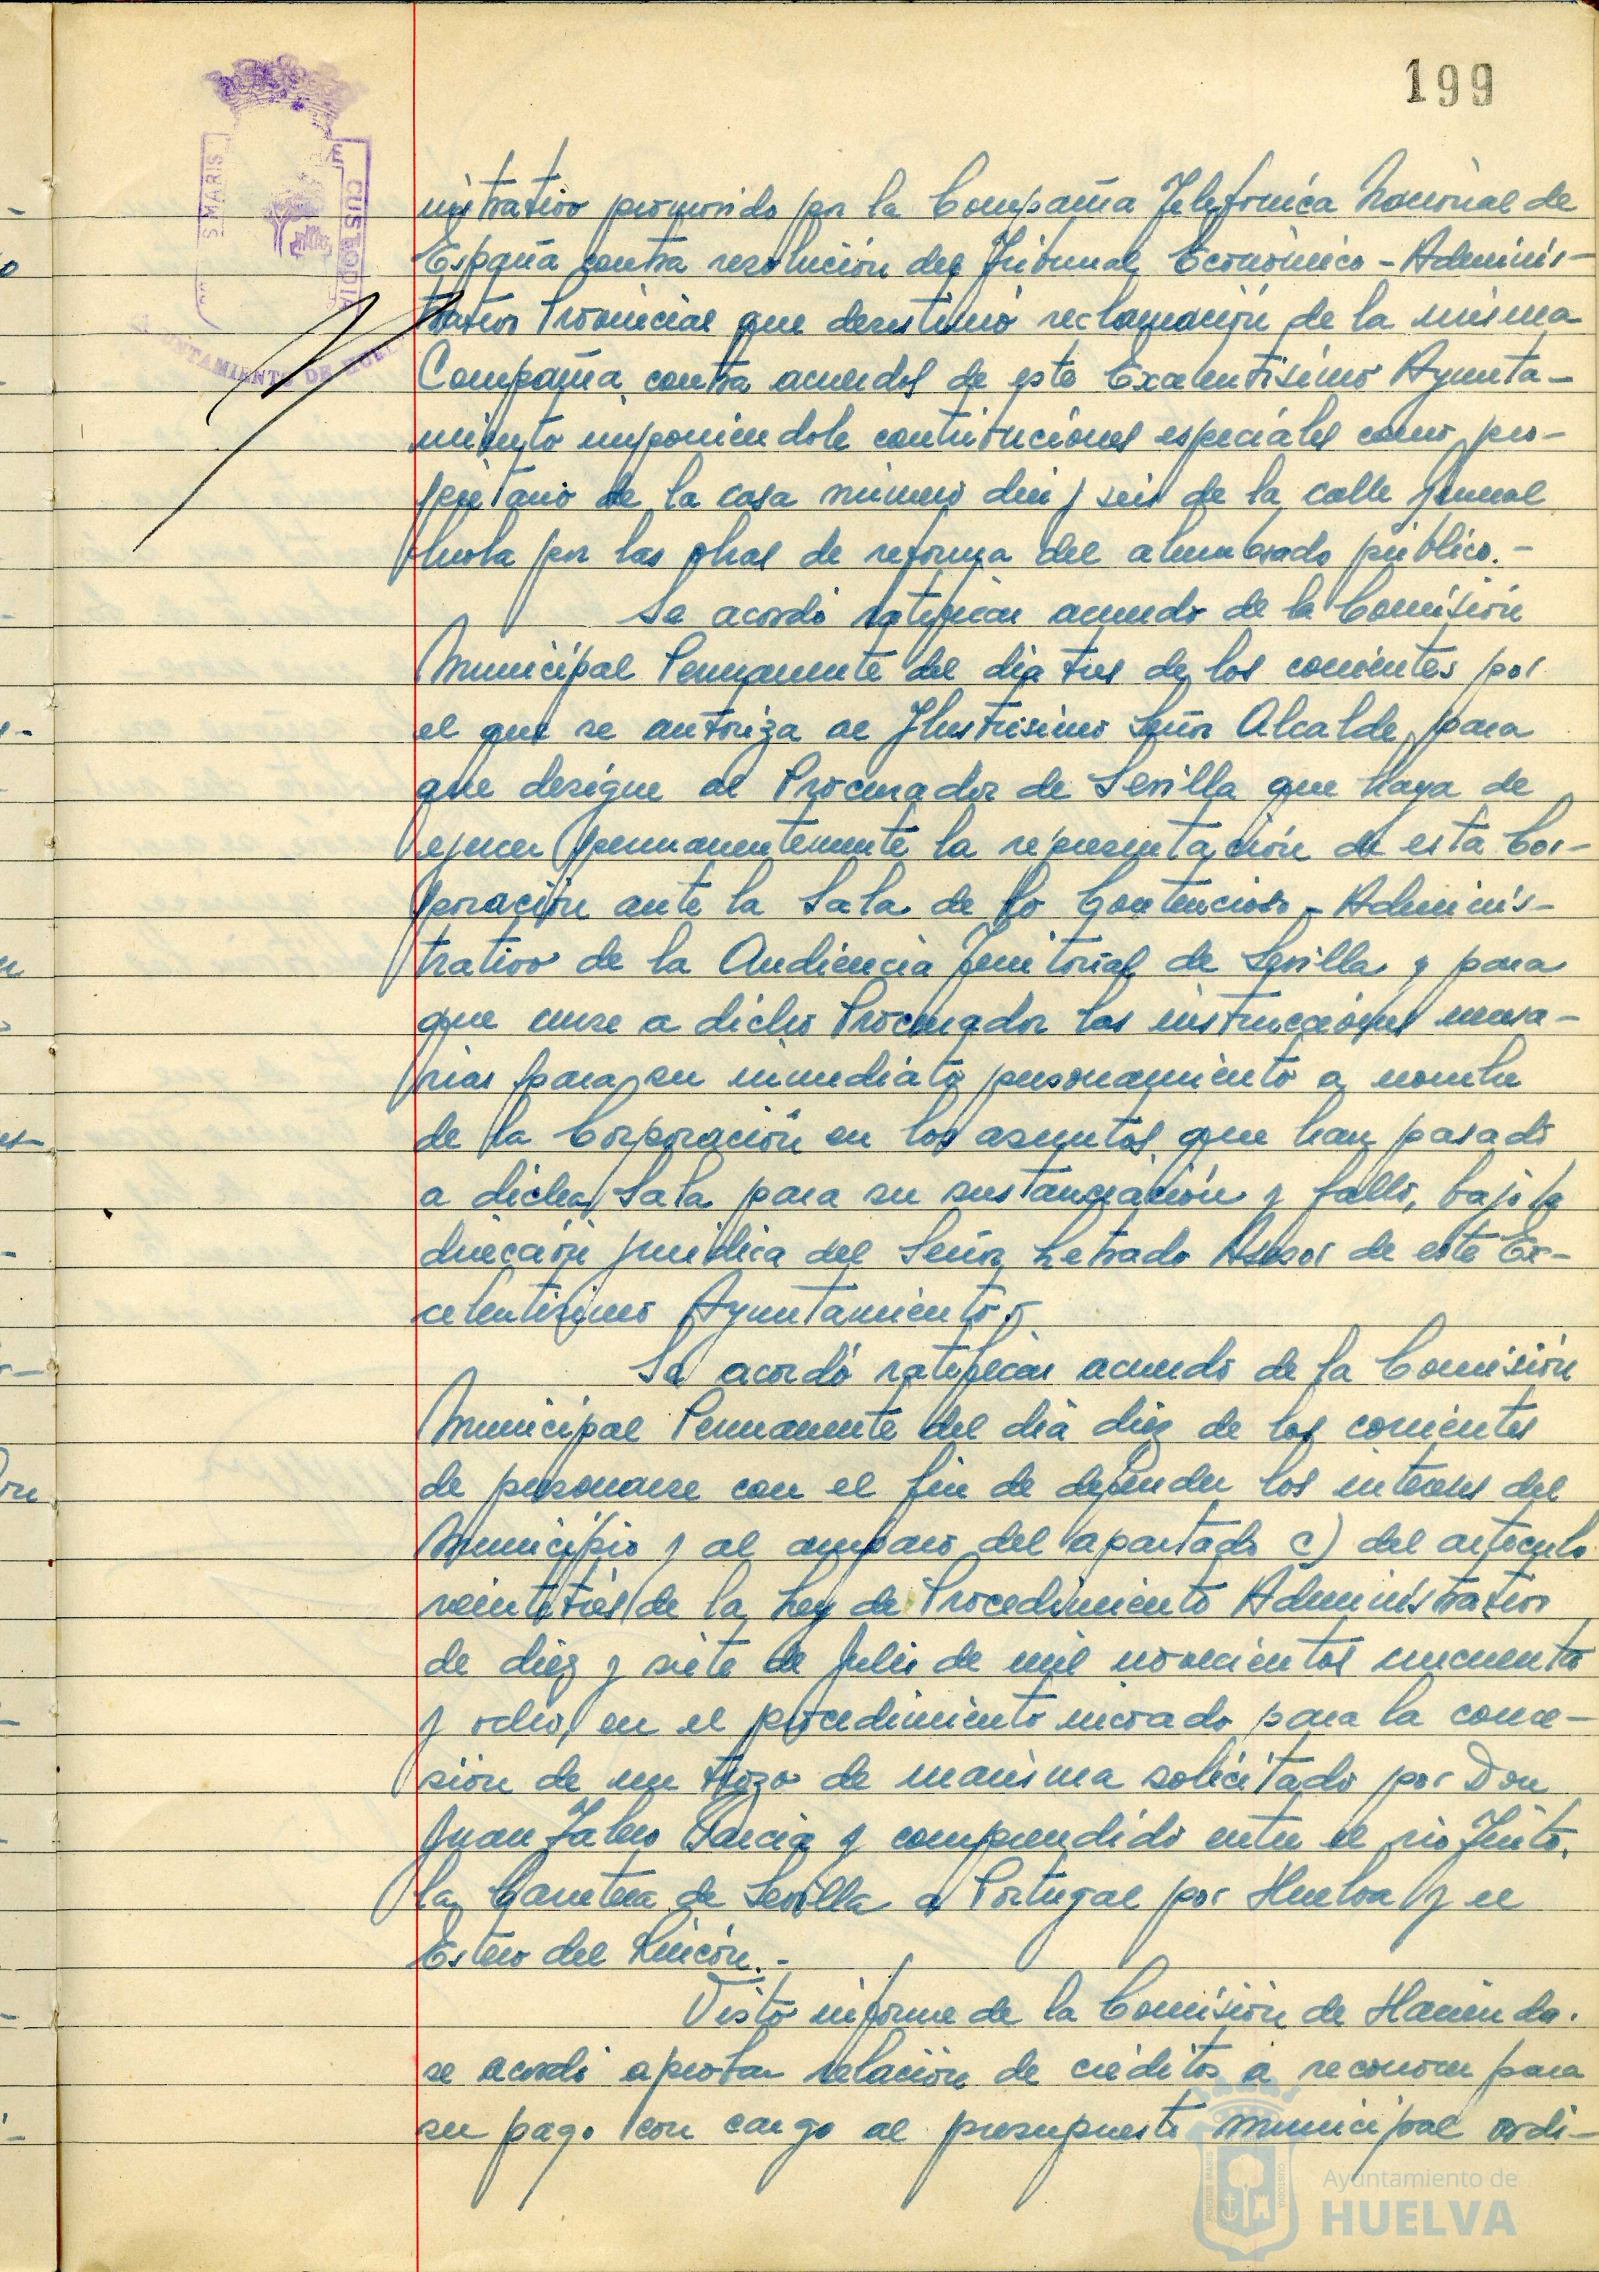 199
S MARIS
CUSTODIA
AYUNTAMIENTO DE HUELVA
nistrativo promovido por la Compañia Telefonica Nacional de
España contra resolución del Tribunal Económico-Adminis-
trativo Provincial que desestimó reclamación de la misma
Compañia contra acuerdos de este Excelentisimo Ayunta-
miento imponiendole contribuciones especiales como pro-
pietario de la casa numero diez y seis de la calle General
Mola por las obras de reforma del alumbrado público.-
Se acordó ratificar acuerdo de la Comisión
Municipal Permanente del dia tres de los corrientes por
el que se autoriza al Ilustrisimo Señor Alcalde para
que designe al Procurador de Sevilla que haya de
ejercer permanentemente la representación de esta Cor-
poración ante la Sala de lo Contencioso-Adminis-
trativo de la Audiencia Territorial de Sevilla y para
que curse a dicho Procurador las instrucciones necesa-
rias para su inmediato personamiento a nombre
de la Corporación en los asuntos que han pasado
a dicha Sala para su sustanciación y fallo, bajo la
dirección juridica del Señor Letrado Asesor de este Ex-
celentisimo Ayuntamiento.-
Se acordó ratificar acuerdo de la Comisión
Municipal Permanente del dia diez de los corrientes
de personarse con el fin de defender los intereses del
Municipio y al amparo del apartado c) del articulo
veintitrés de la Ley de Procedimiento Administrativo
de diez y siete de Julio de mil novecientos cincuenta
y ocho, en el procedimiento incoado para la conce-
sión de un trozo de marisma solicitado por Don
Juan Garcia y comprendido entre el rio Tinto,
la Carretera de Sevilla a Portugal por Huelva y el
Estero del Rincón.-
Visto informe de la Comisión de Hacienda.
se acordó aprobar relación de créditos a reconocer para
su pago con cargo al presupuesto municipal ordi-
Ayuntamiento de
HUELVA